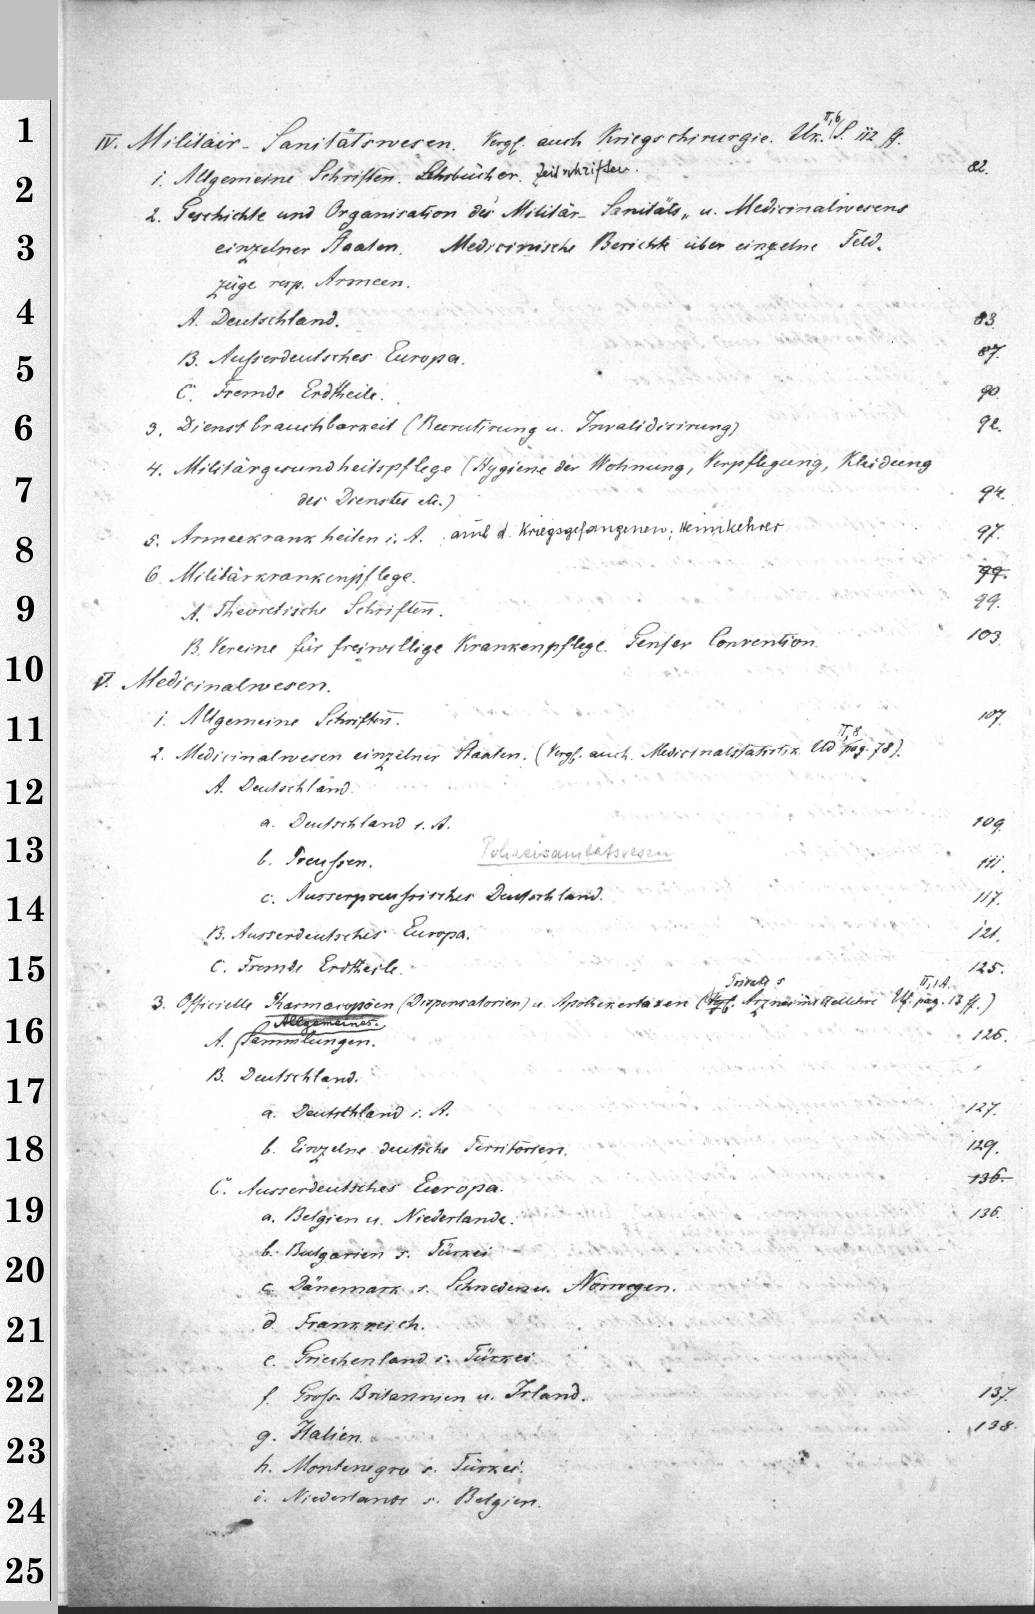 IV. Militair-Sanitätswesen. Vergl. auch Kriegschirurgie. Uk. II,6 S. 112 ff.
1. Allgemeine Schriften. Lehrbücher. Zeitschriften. 82.
2. Geschichte und Organisation des Militär-Sanitäts- u. Medicinalwesens
einzelner Staaten. Medicinische Berichte über einzelne Feld-
züge resp. Armeen.
A. Deutschland. 83.
B. Ausserdeutsches Europa. 87.
C. Fremde Erdtheile. 90.
3. Dienstbrauchbarkeit (Recrutirung u. Invalidisirung) 92.
4. Militärgesundheitspflege (Hygiene der Wohnung, Verpflegung, Kleidung
des Dienstes etc.) 94.
5. Armeekrankheiten i. A. auch d. Kriegsgefangenen; Heimkehrer 97.
6. Militärkrankenpflege. 99.
A. Theoretische Schriften. 99.
B. Vereine für freiwillige Krankenpflege. Genfer Convention. 103.
V. Medicinalwesen.
1. Allgemeine Schriften. 107.
2. Medicinalwesen einzelner Staaten. (Vergl. auch Medicinalstatistik Ud II,8 pag. 78).
A. Deutschland.
a. Deutschland i. A. 109.
b. Preussen. Polizeisanitätswesen 111.
c. Ausserpreussisches Deutschland. 117.
B. Ausserdeutsches Europa. 121.
C. Fremde Erdtheile. 125.
3. Officielle Pharmacopöen (Dispensatorien) u. Apothekertaxen (Vgl. Arzneimittellehre Uf. II,1A. pag. 13 ff.)
Allgemeines.
A. Sammlungen. 126.
B. Deutschland.
a. Deutschland i. A. 127.
b. Einzelne deutsche Territorien. 129.
C. Ausserdeutsches Europa. 136.
a. Belgien u. Niederlande. 136.
b. Bulgarien s. Türkei
c. Dänemark s. Schweden u. Norwegen.
d. Frankreich.
e. Griechenland s. Türkei.
f. Gross-Britannien u. Irland. 137.
g. Italien. 138.
h. Montenegro s. Türkei.
i. Niederlande s. Belgien.
1
2
3
4
5
6
7
8
9
10
11
12
13
14
15
16
17
18
19
20
21
22
23
24
25